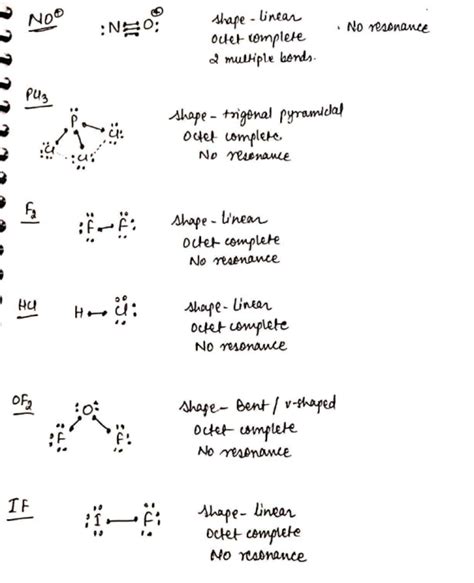 NO⊕ :N≡O: ⊕ shape - linear . No resonance
Octet complete
2 multiple bonds.
PCl3
P shape - trigonal pyramidal
Cl Cl Cl Octet complete
No resonance
F2
:F—F: shape - linear
Octet complete
No resonance
HCl H—Cl: shape - linear
Octet complete
No resonance
OF2 :O: shape - Bent / v-shaped
:F F: Octet complete
No resonance
IF :I—F: shape - linear
Octet complete
No resonance